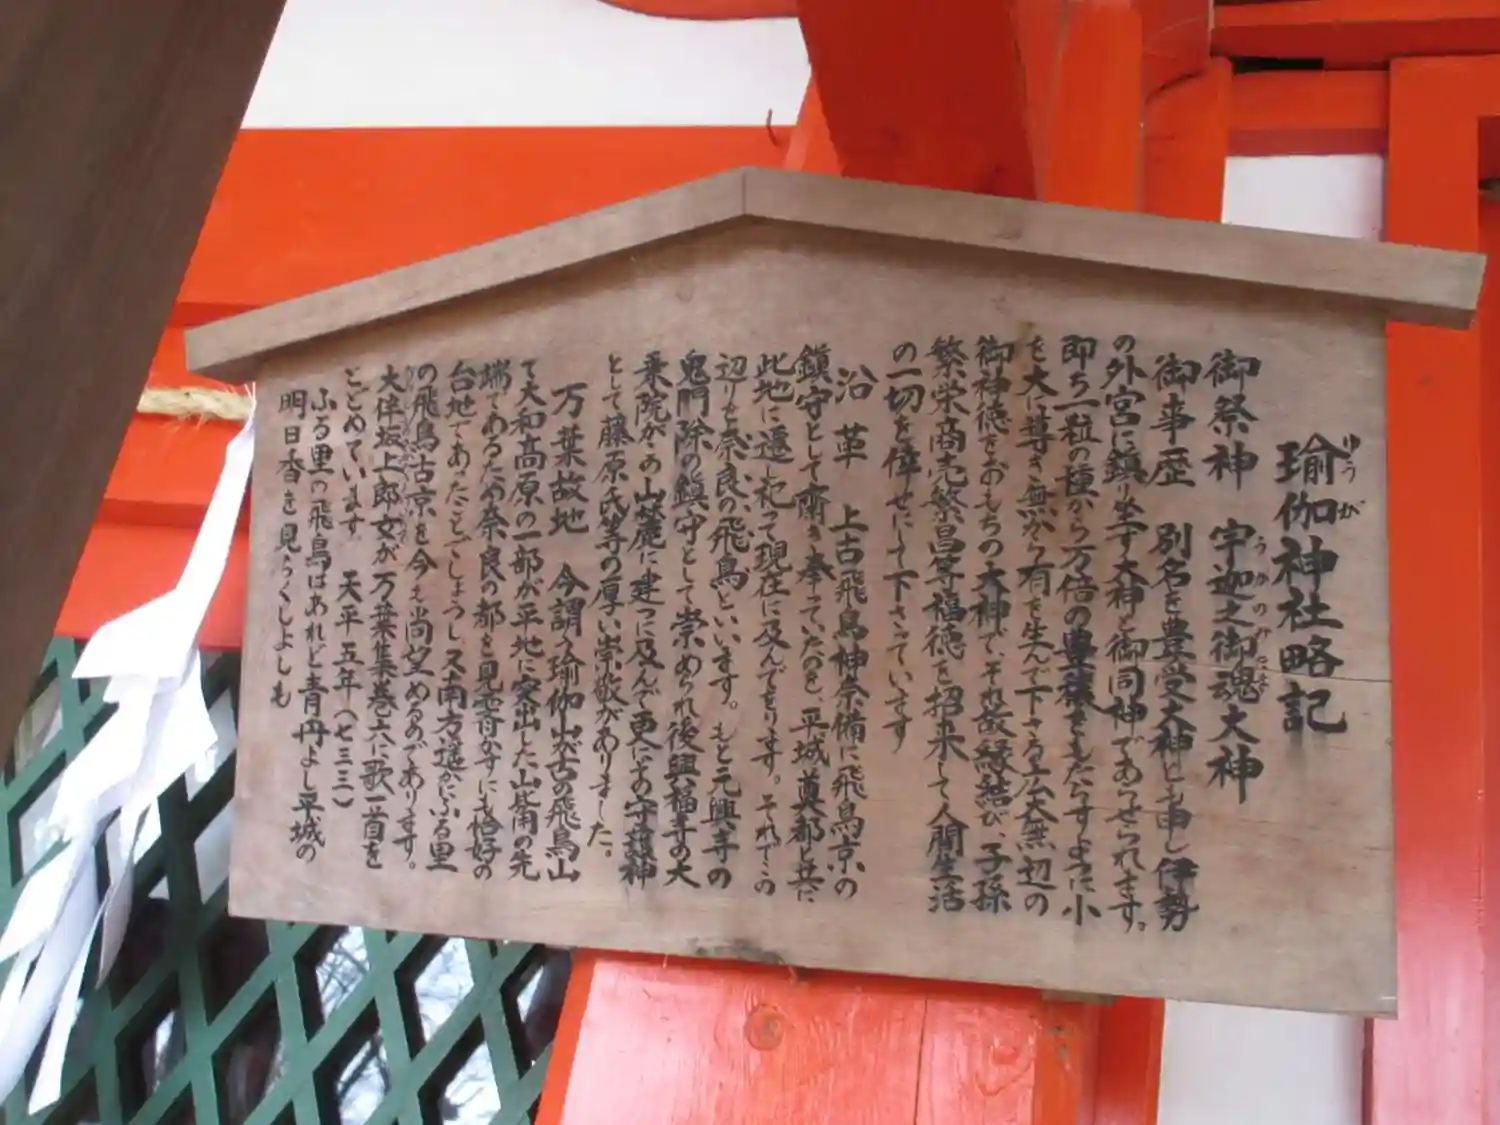 瑜伽神社略記
御祭神　宇迦之御魂大神
御事歴　別名を豊受大神とも申し伊勢
の外宮に鎮り坐す大神と御同神であらせられます。
即ち一粒の種から万倍の豊穣をもたらすように小
を大に導き無から有を生んで下さる広大無辺の
御神徳をおもちの大神で、それ故縁結び、子孫
繁栄商売繁昌等福徳を招来して人間生活
の一切を倖せにして下さっています
沿革　上古飛鳥神奈備に飛鳥京の
鎮守として斎き奉っていたのを、平城奠都と共に
此地に遷し祀って現在に及んでをります。それでこの
辺りを奈良の飛鳥といいます。もと元興寺の
鬼門除の鎮守として崇められ後興福寺の大
乗院がこの山麓に建つに及んで更にその守護神
として藤原氏等の厚い崇敬がありました。
万葉故地　今謂う瑜伽山が古の飛鳥山
で大和高原の一部が平地に突出した山背の先
端であるため奈良の都を見霽かすにも恰好の
台地であったことでしょうし又南方遥かにふる里
の飛鳥古京を今も尚望めるのであります。
大伴坂上郎女が万葉集巻六に歌一首を
とどめています　天平五年（七三三）
ふる里の飛鳥はあれど青丹よし平城の
明日香を見らくしよしも